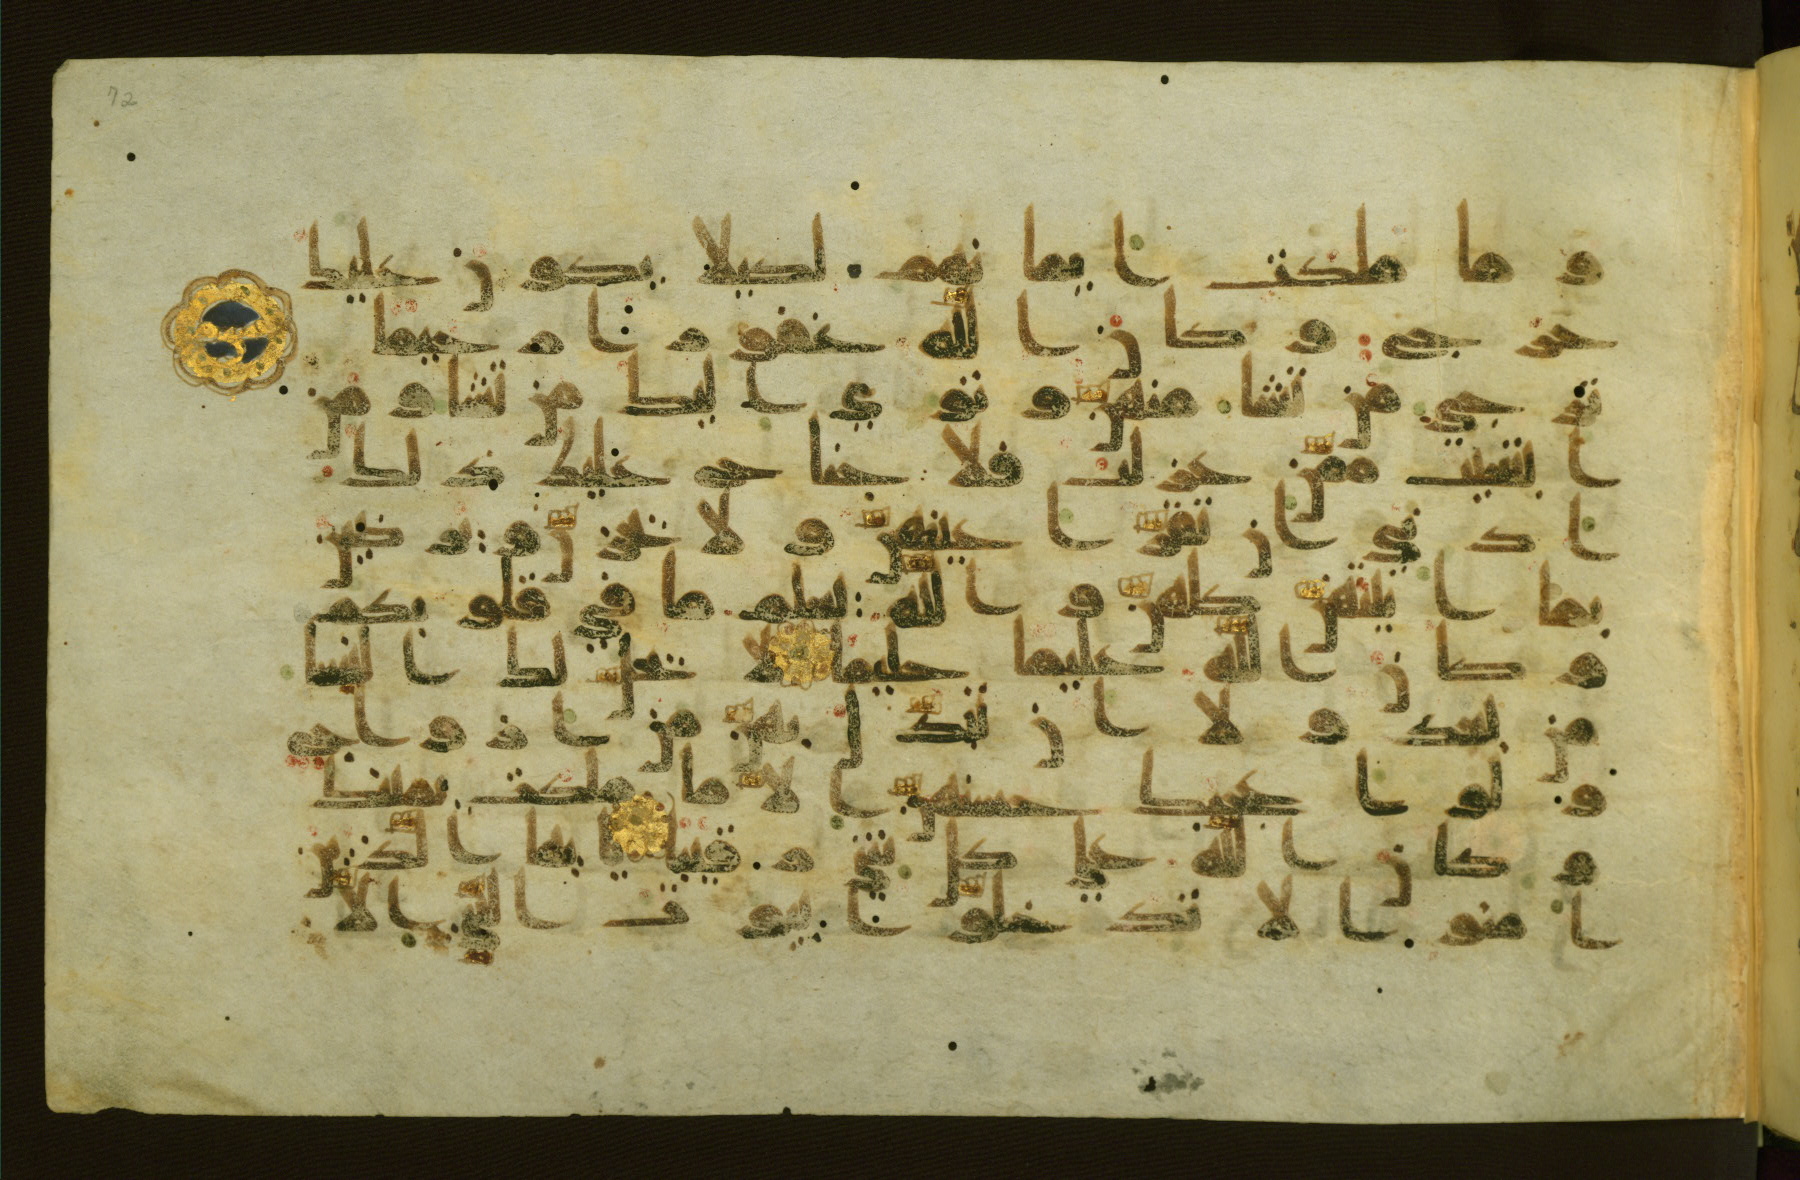 72
و ما ملكت ايمانهم لكيلا يكون عليك
حرج وكان الله غفورا رحيما
ترجي من تشا منهن وتوي اليك من تشا ومن
ابتغيت ممن عزلت فلا جناح عليك ذلك
ادني ان تقر اعينهن ولا يحزن ويرضين
بما اتيتهن كلهن والله يعلم ما في قلوبكم
وكان الله عليما حليما لا تحل لك النسا
من بعد ولا ان تبدل بهن من ازواج
ولو اعجبك حسنهن الا ما ملكت يمينك
وكان الله علي كل شي رقيبا يايها الذين
امنوا لا تدخلوا بيوت النبي الا